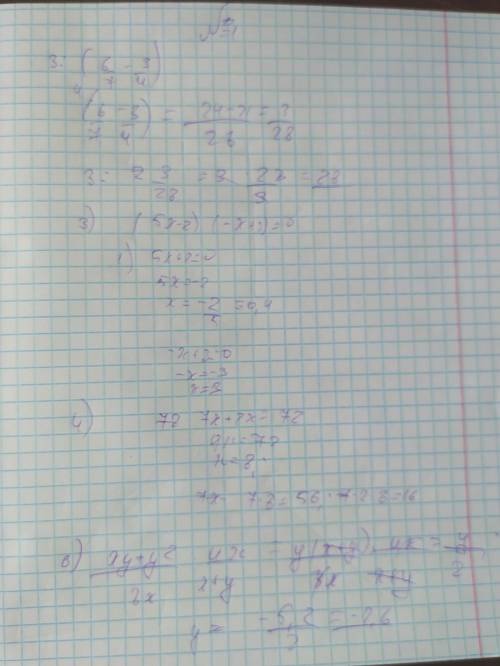 №1
3 : (6/7 - 3/4)
(6/7 - 3/4) = 24-21/28 = 3/28
3 : 3/28 = 3 · 28/3 = 28
3) (5x-2) (-x+3)=0
1) 5x+2=0
5x=-2
x = -2/5 = 0,4
-x+3=0
-x=-3
4) 72 7x+2x=72
9x=72
x=8
7x 7·8=56, 2·8=16
6) xy+y²/8x · 4x/x+y = y(x+y)/8x · 4x/x+y = y/2
y = -5,2/2 = -2,6